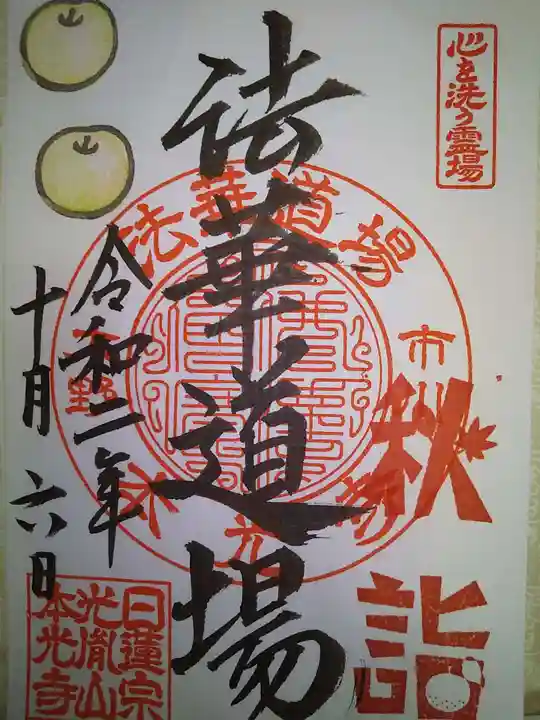 心を洗う霊場
秋
詣
法華道場
法華道場
市
令和二年
十月六日
日蓮宗
光胤山
本光寺